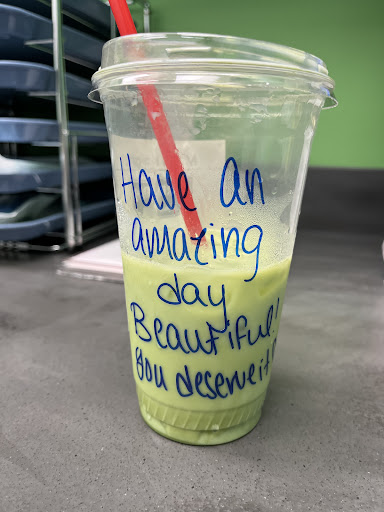 Have An
amazing
day
Beautiful!
you deserve it!